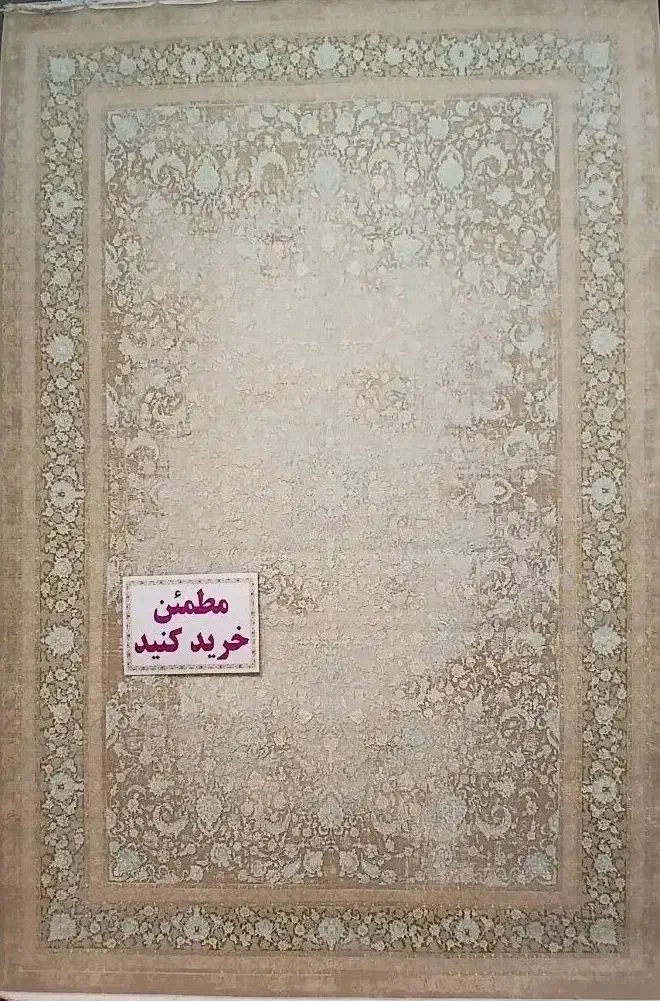 مطمئن
خرید کنید